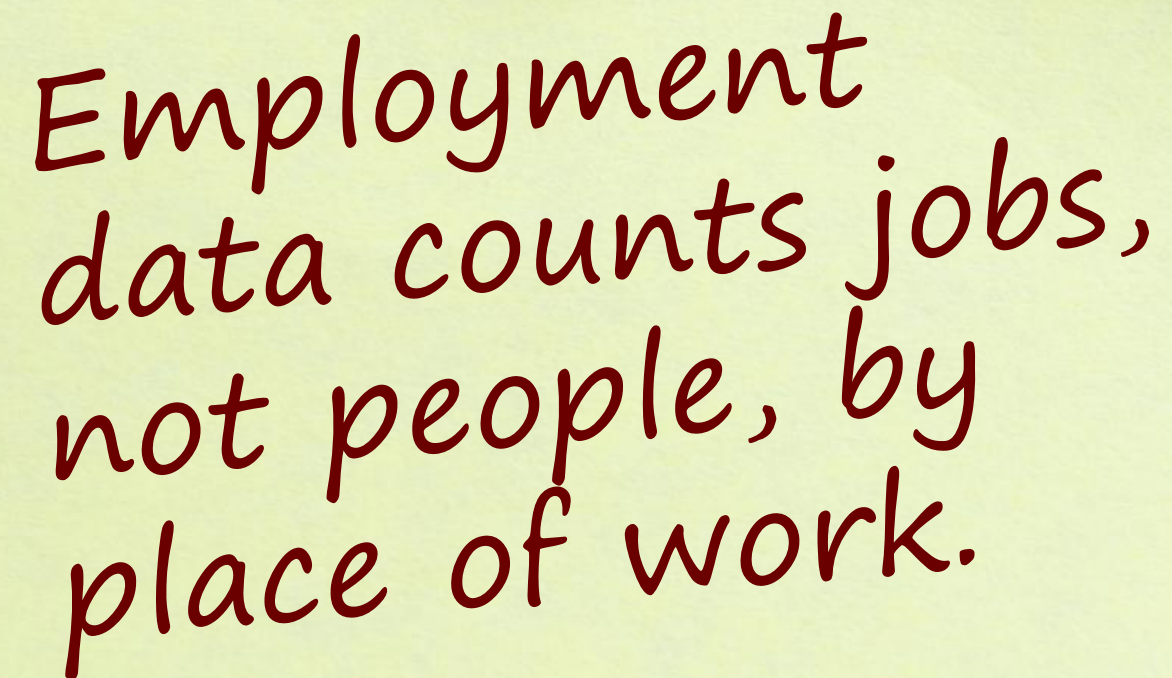 Employment
data counts jobs,
not people, by
place of work.